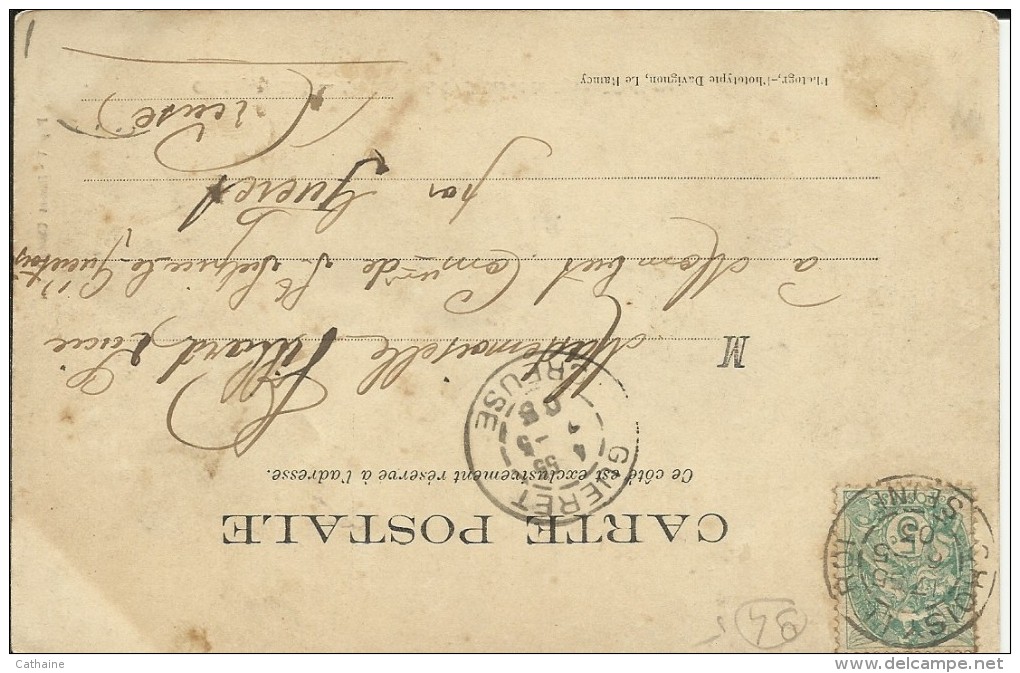 CARTE POSTALE
Ce côté est exclusivement réservé à l'adresse.
GUERET
CREUSE
CHOISY LE ROI
SEINE
M
Mademoiselle Lucie
à Montbut Comne de St Sulpice le Guérétois
par Guéret
(Creuse)
Photogr.-Phototypie Davignon, Le Raincy
Cathaine
www.delcampe.net